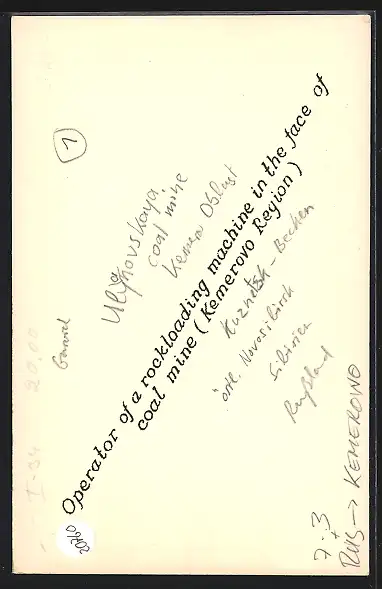 1
Ulyanovskaya
coal mine
Kemer Oblast
Operator of a rockloading machine in the face of
coal mine (Kemerovo Region)
Kuznetsk-Becken
östl. Novosibirsk
Sibirien
Rußland
I-34 20.00
20760
7.3
RUS → KEMEROWO